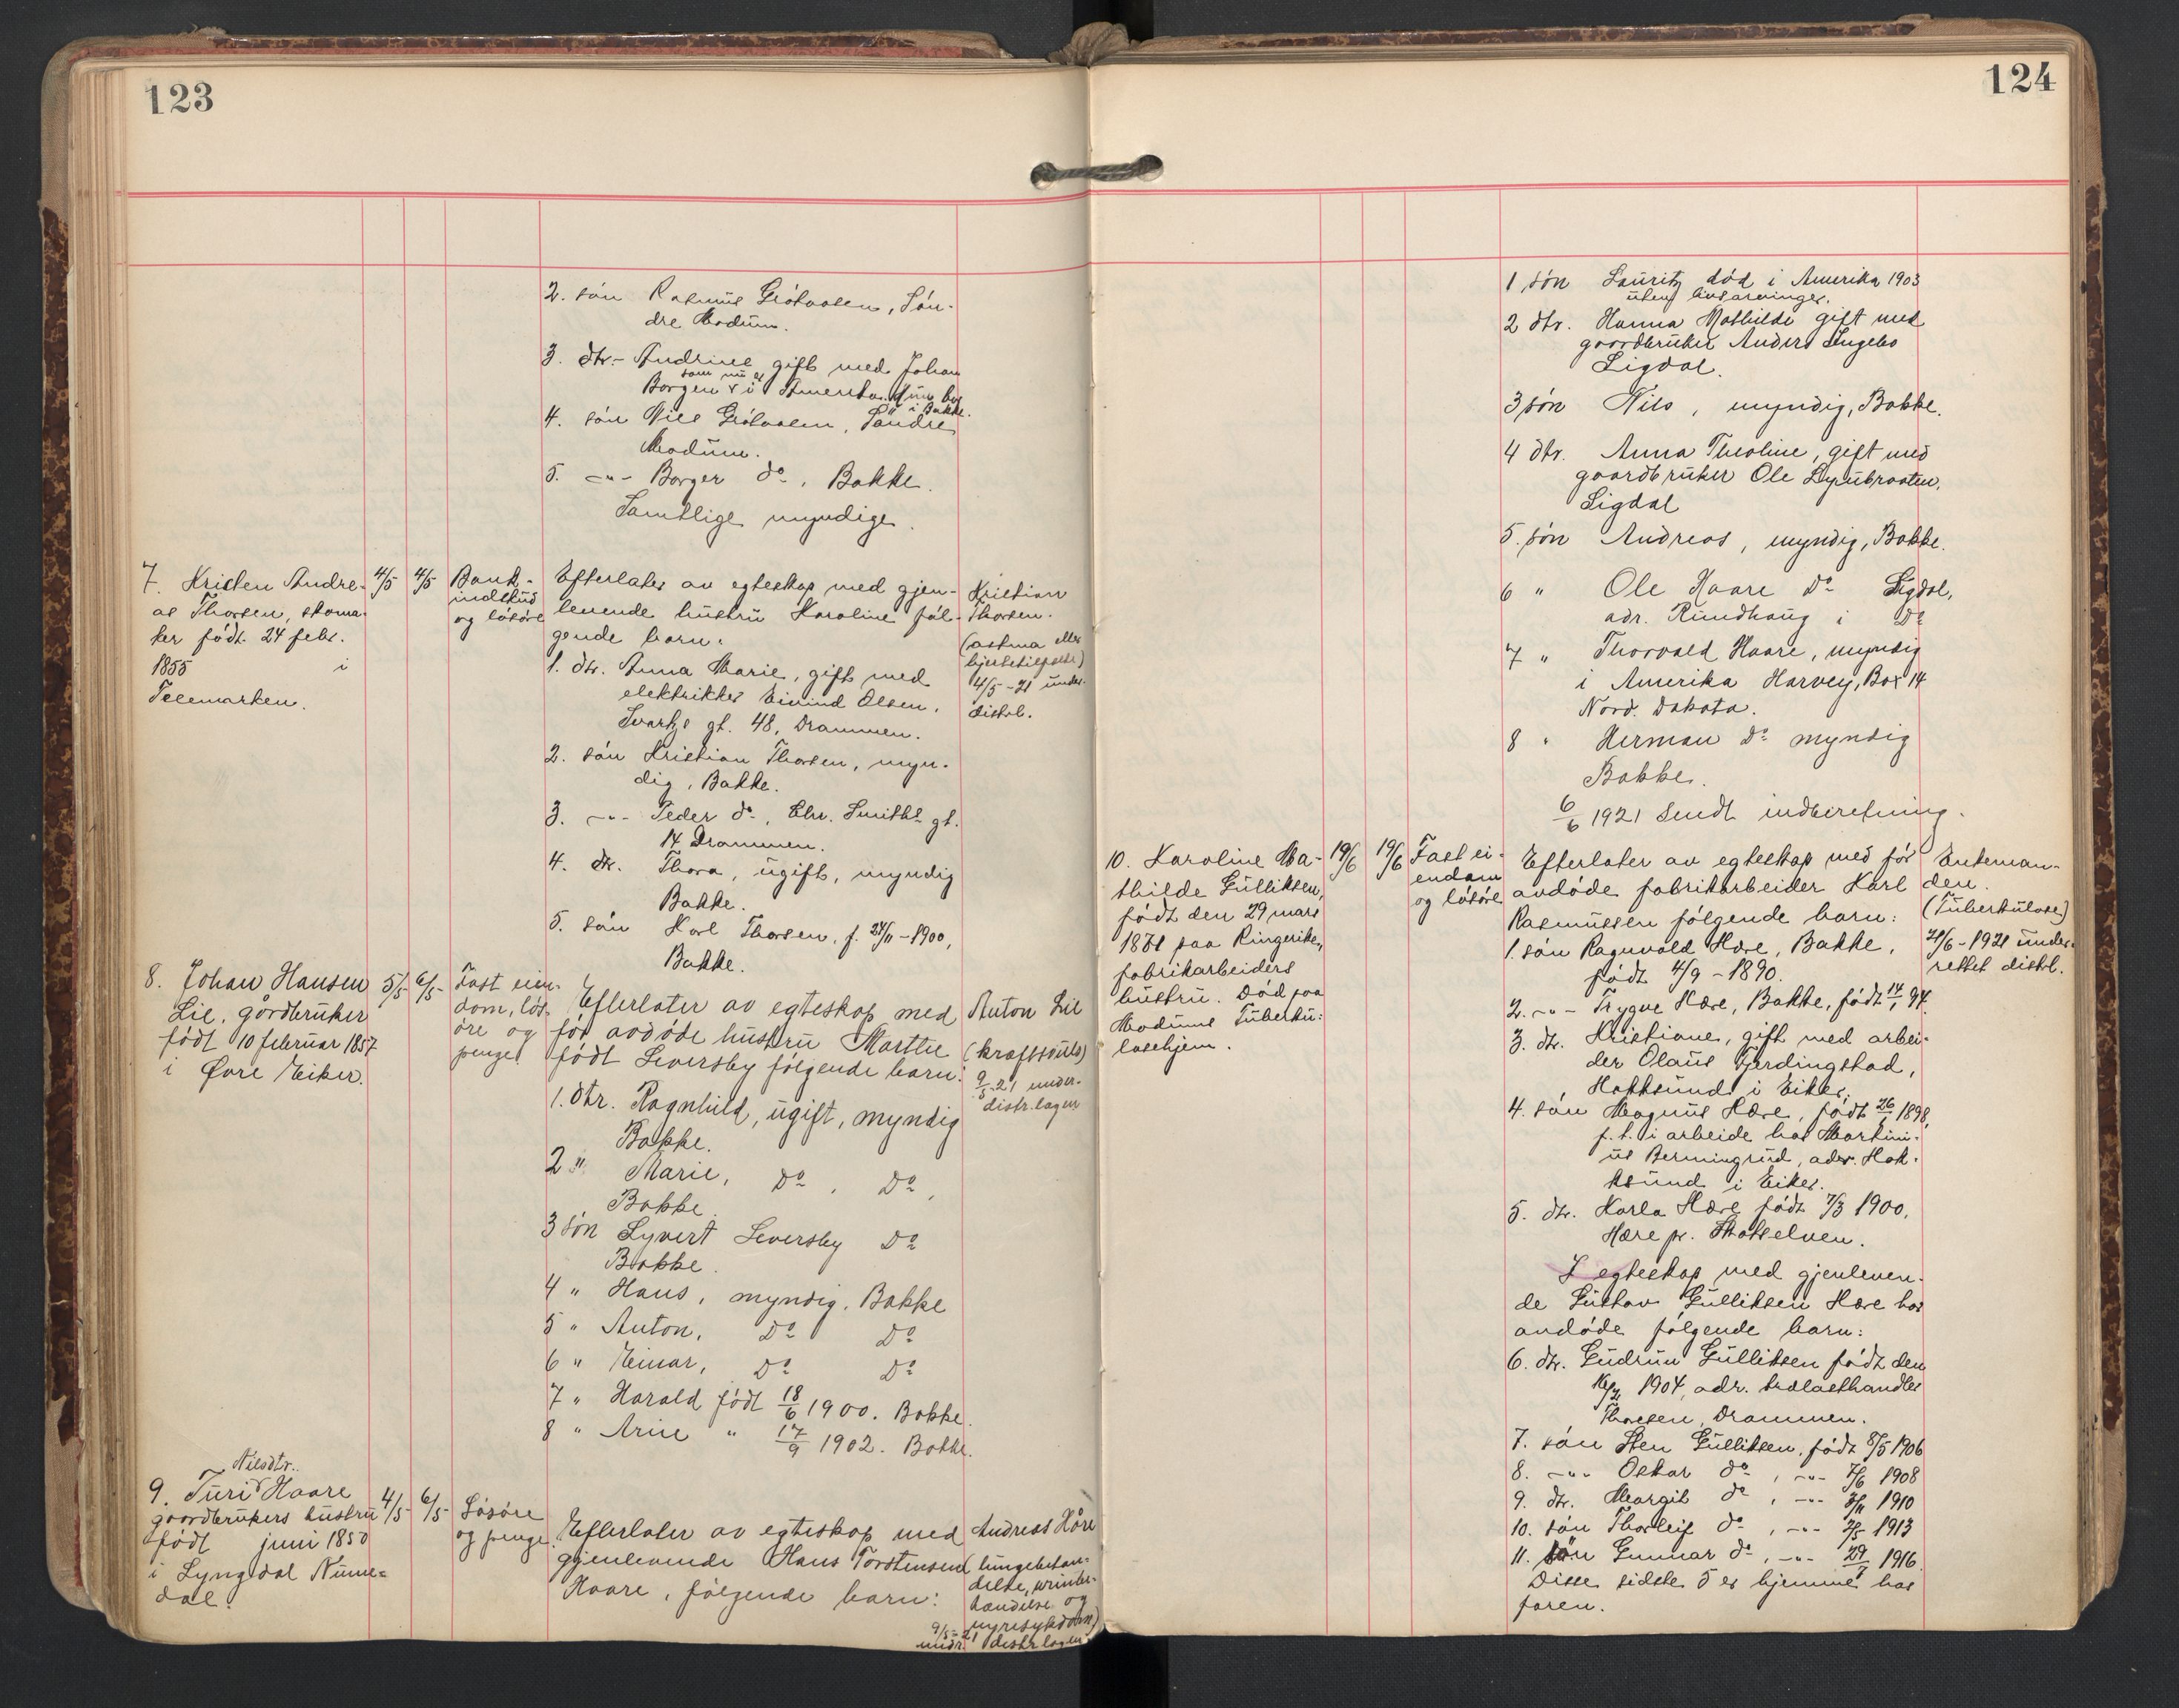 123
2. søn Rasmus Grótvolen, Søn-
dre Modum.
3. dtr. Andrine gift med Johan
som nu er
Borgen i Amerika. Hun bor
i Bakke.
4. søn Nils Grótvolen, Søndre
Modum.
5. -"- Borger do, Bakke.
Samtlige myndige.
7. Kristen Andre-
as Thorsen, skoma-
ker født 24 febr.
1855 i
Telemarken.
4/5
4/5
Bank-
indskud
og løsøre
Efterlater av egteskap med gjen-
levende hustru Karoline føl-
gende barn:
1. dtr. Anna Marie, gift med
elektrikker Eivind Olsen,
Svartz gt. 48, Drammen.
2. søn Kristian Thorsen, myn-
dig, Bakke.
3. -"- Peder do, Chr. Smiths gt.
14 Drammen.
4. dtr. Thora, ugift, myndig
Bakke.
5. søn Karl Thorsen, f. 24/11-1900,
Bakke.
Kristian
Thorsen.
(astma eller
4/5-21 under.
distrl.
8. Johan Hansen
Lie, gårdbruker
født 10 februar 1857
i Øvre Eiker.
5/5
6/5
Fast eien-
dom, løs-
øre og
penge
Efterlater av egteskap med
før avdøde hustru Marthe
født Leversby følgende barn:
1. dtr. Ragnhild, ugift, myndig
Bakke.
2 " Marie, Do, Do,
Bakke.
3 søn Syvert Leversby Do
Bakke.
4 " Hans, myndig, Bakke
5 " Anton, Do Do
6 " Einar, Do Do
7 " Harald født 18/6 1900. Bakke.
8 " Arne " 17/9 1902. Bakke.
Anton Lie
9/5-21 under.
distr. lagen
Nilsdtr.
9. Turi Haare
gaardbrukers hustru
født juni 1850
i Lyngdal Nume-
dal.
4/5
6/5
Løsøre
og penge
Efterlater av egteskap med
gjenlevende Hans Torstensen
Haare, følgende barn:
Andreas Håre
(lungebetæn-
delse, urinbe-
tændelse og
nyresykdom)
9/5-21
undr. distr lagen
124
1 søn Lauritz død i Amerika 1903
uten livsarvinger.
2 dtr. Hanna Mathilde gift med
gaardbruker Anders
Sigdal.
3 søn Nils, myndig, Bakke.
4 dtr. Anna Theoline, gift med
gaardbruker Ole
Sigdal
5. søn Andreas, myndig, Bakke.
6 " Ole Haare Do Sigdal,
adr. Rundhaug i Do
7 " Thorvald Haare, myndig
i Amerika Harvey, Box 14
Nord. Dakota.
8 " Herman Do myndig
Bakke.
6/6 1921 Sendt indberetning.
10. Karoline Ma-
thilde Gulliksen,
født den 29 mars
1871 paa Ringerike,
fabrikarbeiders
hustru. Død paa
Modums Tuberku-
losehjem.
19/6
19/6
Fast ei-
endom
og løsøre
Efterlater av egteskap med før
avdøde fabrikarbeider Karl
Rasmussen følgende barn:
1. søn Ragnvald Hære, Bakke,
født 4/9-1890.
2. -"- Trygve Hære, Bakke, født 14/1 94.
3. dtr. Kristiane, gift med arbei-
der Olaus Fjerdingstad,
Hokksund i Eiker.
4. søn Magnus Hære, født 26/1 1898,
p. t. i arbeide hos Martini-
us Bermingrud, adr. Hok-
ksund i Eiker.
5. dtr. Karla Hære født 7/3 1900.
Hære pr. Skotselven.
I egteskap med gjenleven-
de Gustav Gulliksen Hære har
avdøde følgende barn:
6. dtr. Gudrun Gulliksen født den
1904, adr. trælasthandler
Thorsen, Drammen.
7. søn Sten Gulliksen, født 8/5 1906
8. -"- Oskar do, -"- 7/6 1908
9. dtr. Margit do, -"- 3/11 1910
10. søn Thorleif do, -"- 2/5 1913
11. søn Gunnar do, -"- 29/7 1916.
Disse sidste 5 er hjemme hos
faren.
Enkeman-
den.
(Tuberkulose)
21/6-1921 under-
rettet distrl.